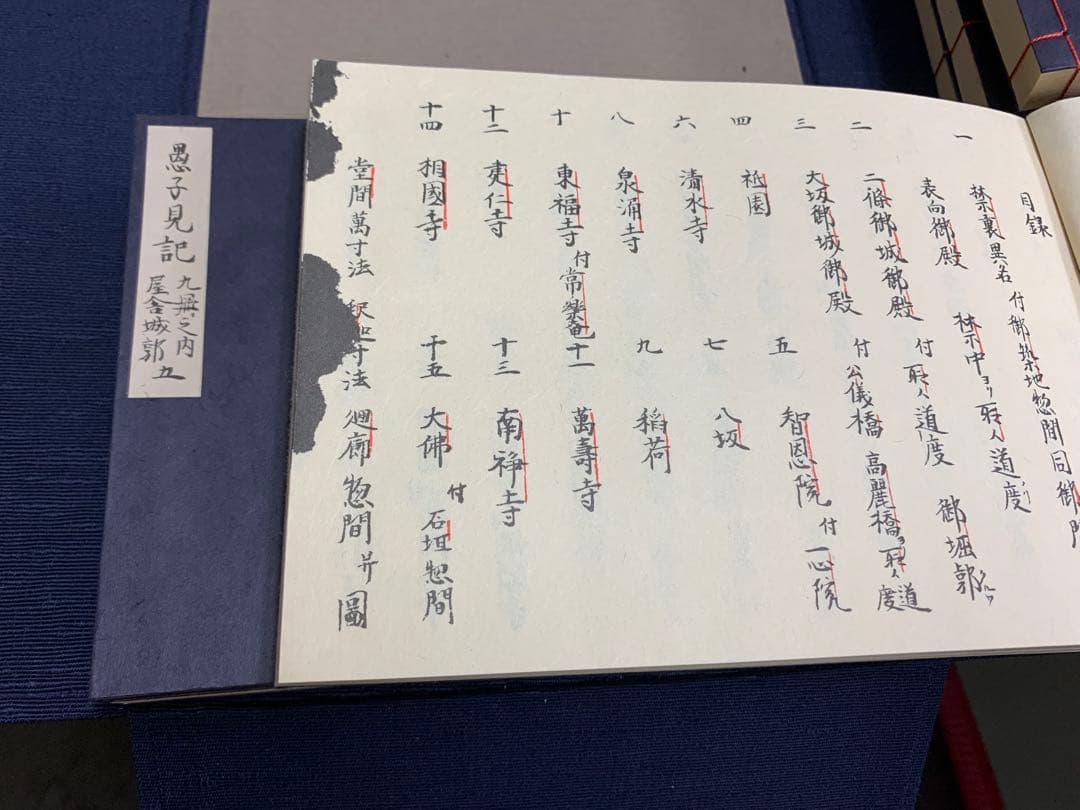 目録
一 禁裏異名 付御築地惣間同御門
表向御殿 禁中ヨリ 道度
二 二條御城御殿 付 道度 御堀郭
三 大坂御城御殿 付公儀橋 高麗橋ヨリ 道度
四 祗園 五 智恩院 付一心院
六 清水寺 七 八坂
八 泉涌寺 九 稻荷
十 東福寺 付常樂菴 十一 萬壽寺
十二 建仁寺 十三 南禅寺
十四 相國寺 十五 大佛 付石垣惣間
堂間萬寸法 釈迦寸法 廻廊惣間并圖
愚子見記 九冊之内
屋舎城郭 五